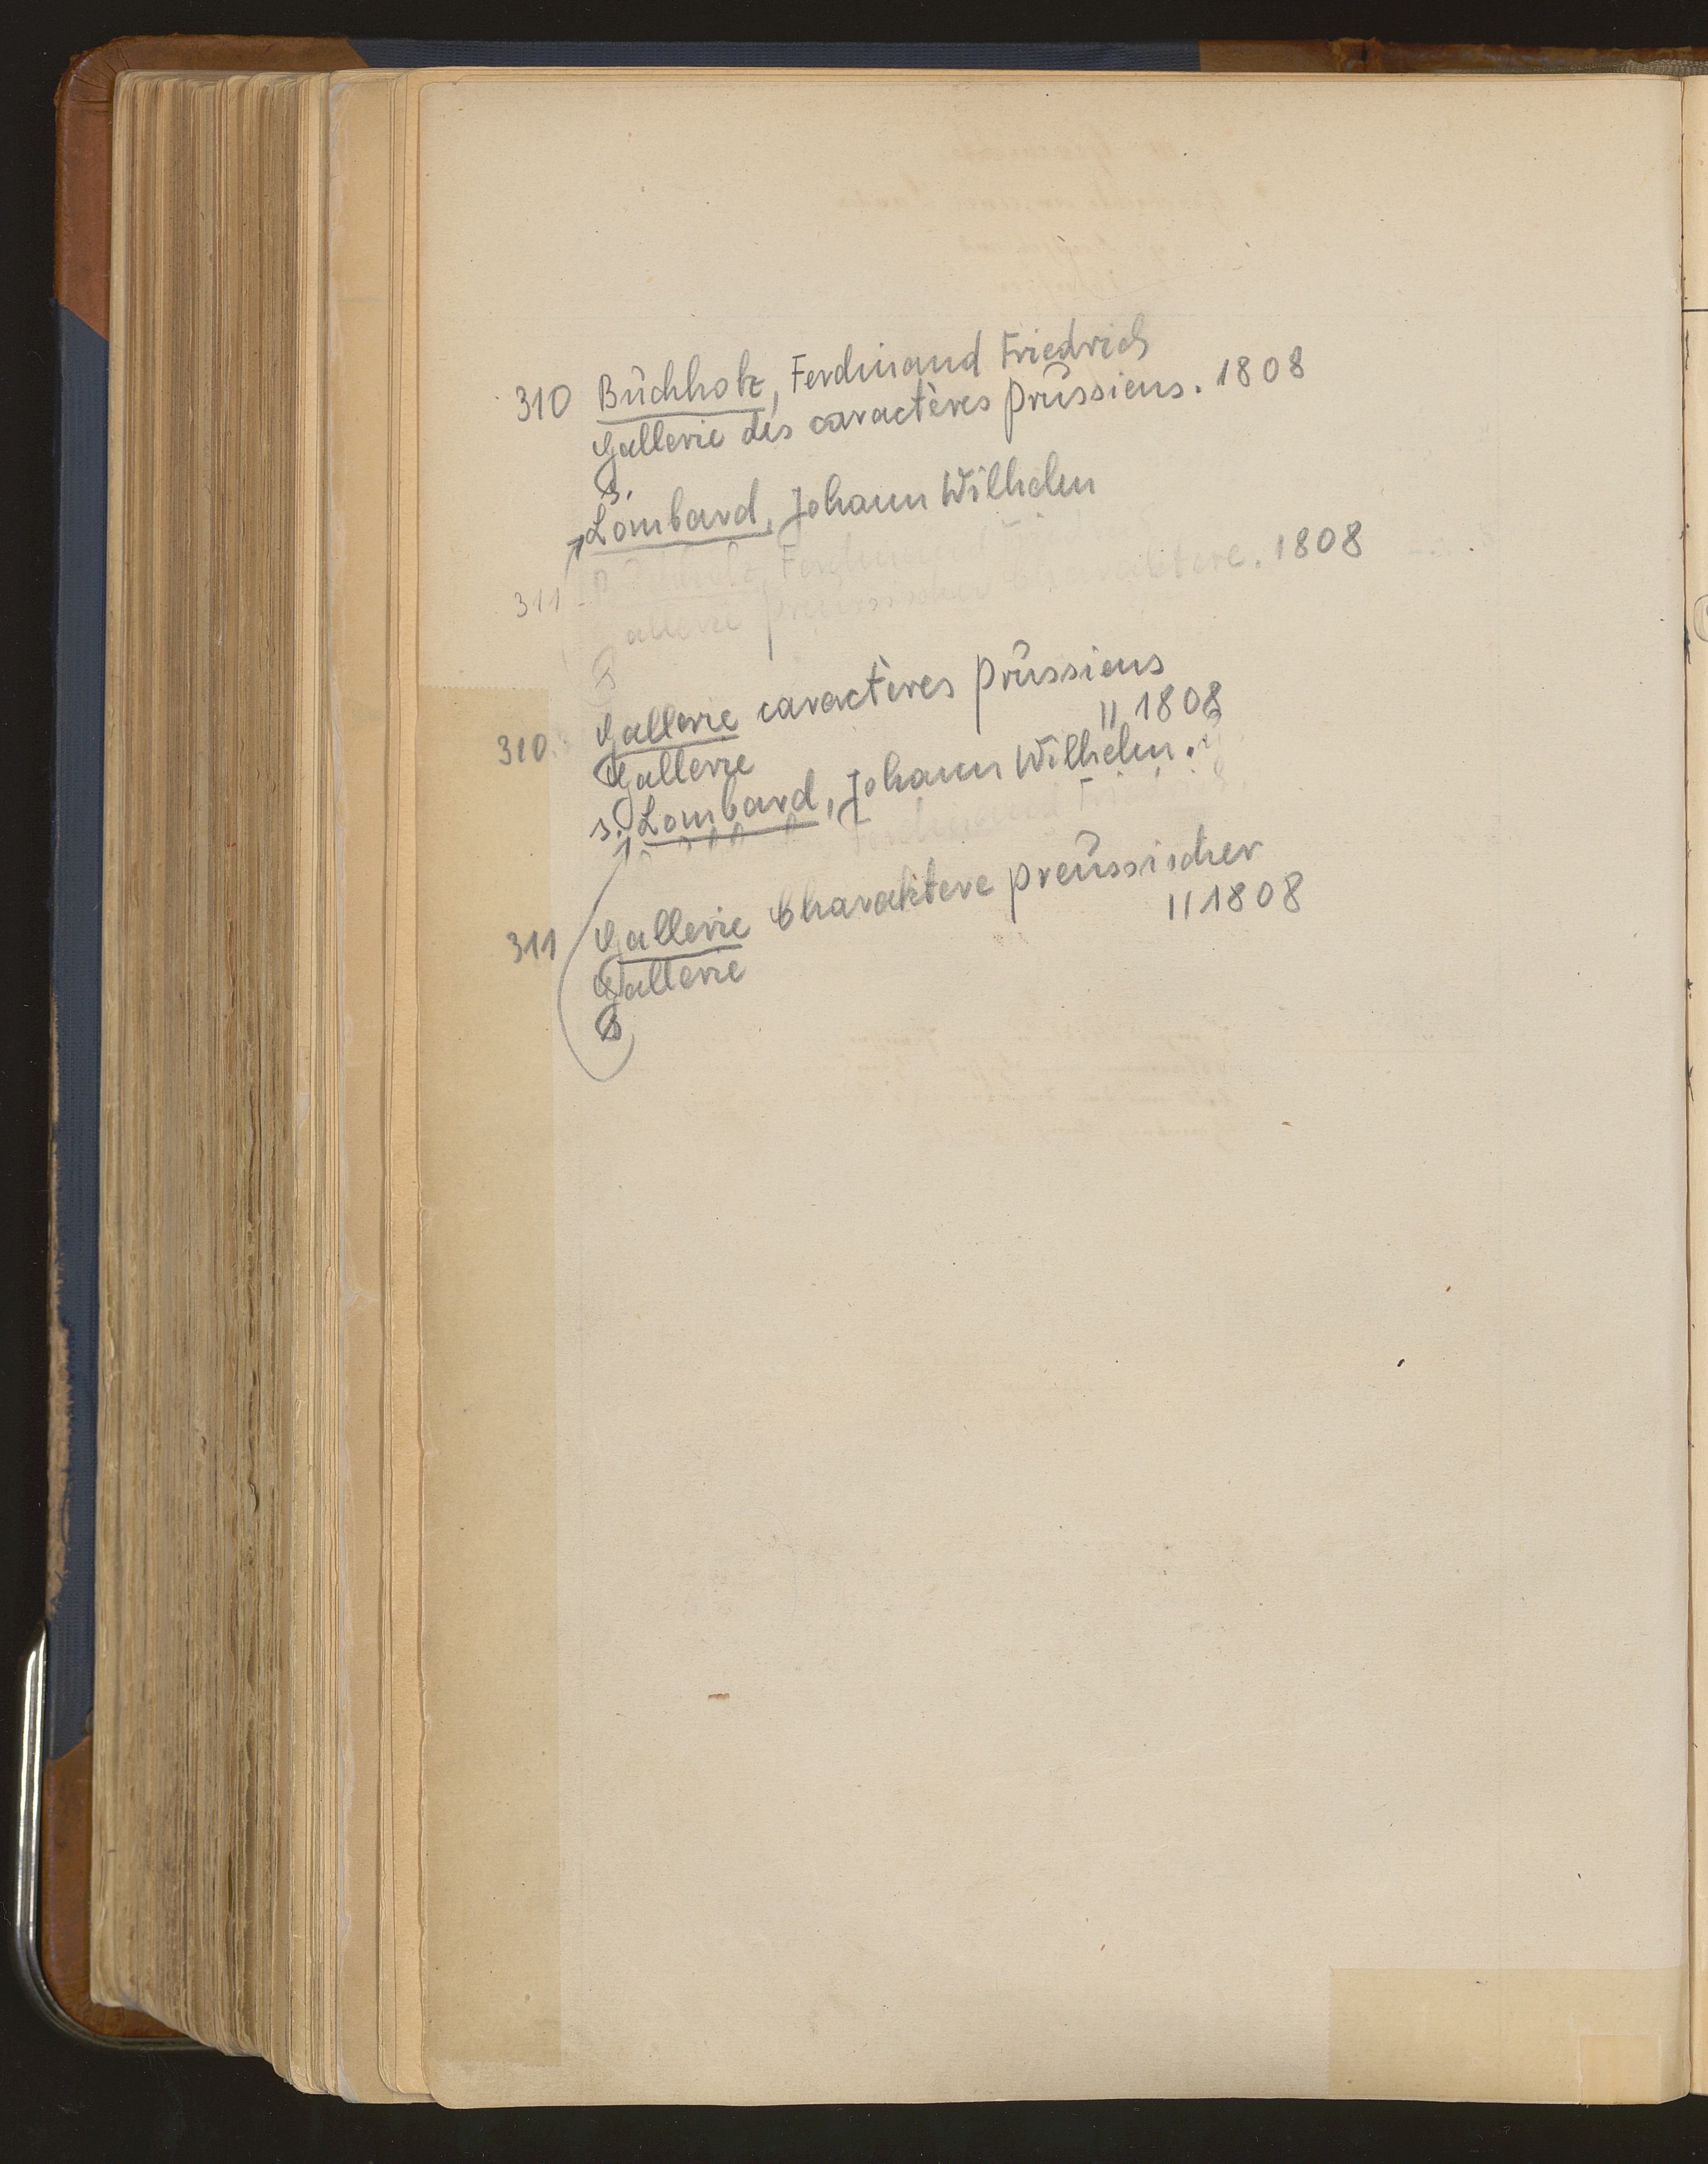 310 Buchholz, Ferdinand Friedrich
Gallerie des caractères prussiens. 1808
s.
Lombard, Johann Wilhelm
311 Buchholz, Ferdinand
Gallerie preussischer Charaktere. 1808
s
310 Gallerie caractères prussiens
Gallerie || 1808
s. Lombard, Johann Wilhelm.
Ferdinand Friedrich
311 Gallerie Charaktere preussischer
Gallerie || 1808
s